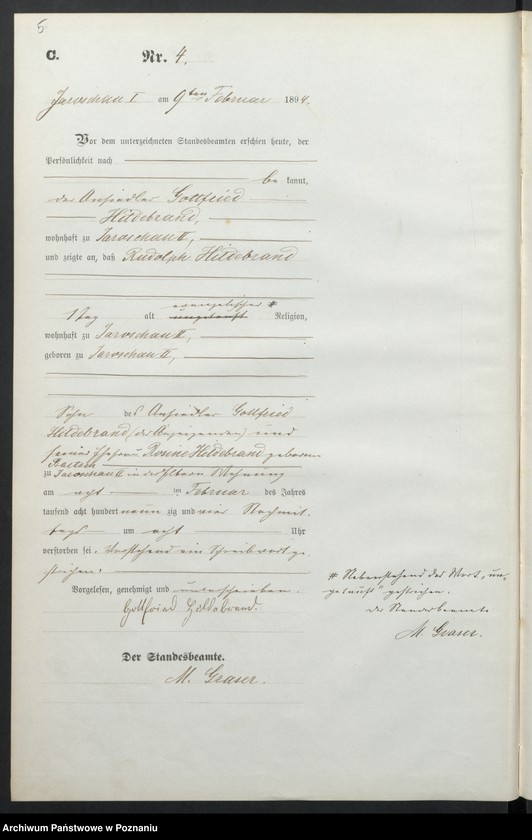 5
C. Nr. 4.
Jaroschau I am 9ten Februar 1894.
Vor dem unterzeichneten Standesbeamten erschien heute, der
Persönlichkeit nach
be kannt,
der Ansiedler Gottfried
Hildebrand,
wohnhaft zu Jaroschau II,
und zeigte an, daß Rudolph Hildebrand
evangelischer #
1 Tag alt ungetauft Religion,
wohnhaft zu Jaroschau II,
geboren zu Jaroschau II,
Sohn des Ansiedler Gottfried
Hildebrand, (des Anzeigenden) und
seiner Ehefrau Rosine Hildebrand geborenen
zu Jaroschau II in der Eltern Wohnung
am acht ten Februar des Jahres
tausend acht hundert neun zig und vier Nachmit-
tags um acht Uhr
verstorben sei. Vorstehend ein Schreibwort ge-
strichen.
Vorgelesen, genehmigt und unterschrieben.
Gottfried Hildebrand.
Der Standesbeamte.
M. Graser.
# Nebenstehend das Wort „un-
getauft" gestrichen.
der Standesbeamte
M. Graser.
Archiwum Państwowe w Poznaniu